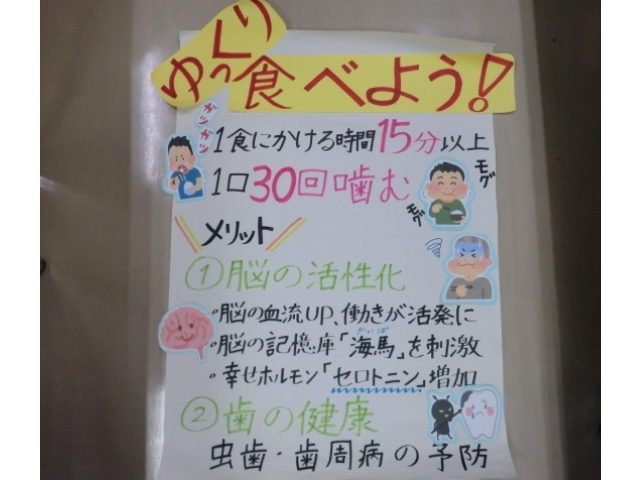 ゆっくり食べよう!
ガツガツ
1食にかける時間15分以上
1口30回噛む
モグ
モグ
メリット
①脳の活性化
・脳の血流UP、働きが活発に
・脳の記憶庫「海馬」を刺激
かいば
・幸せホルモン「セロトニン」増加
②歯の健康
虫歯・歯周病の予防